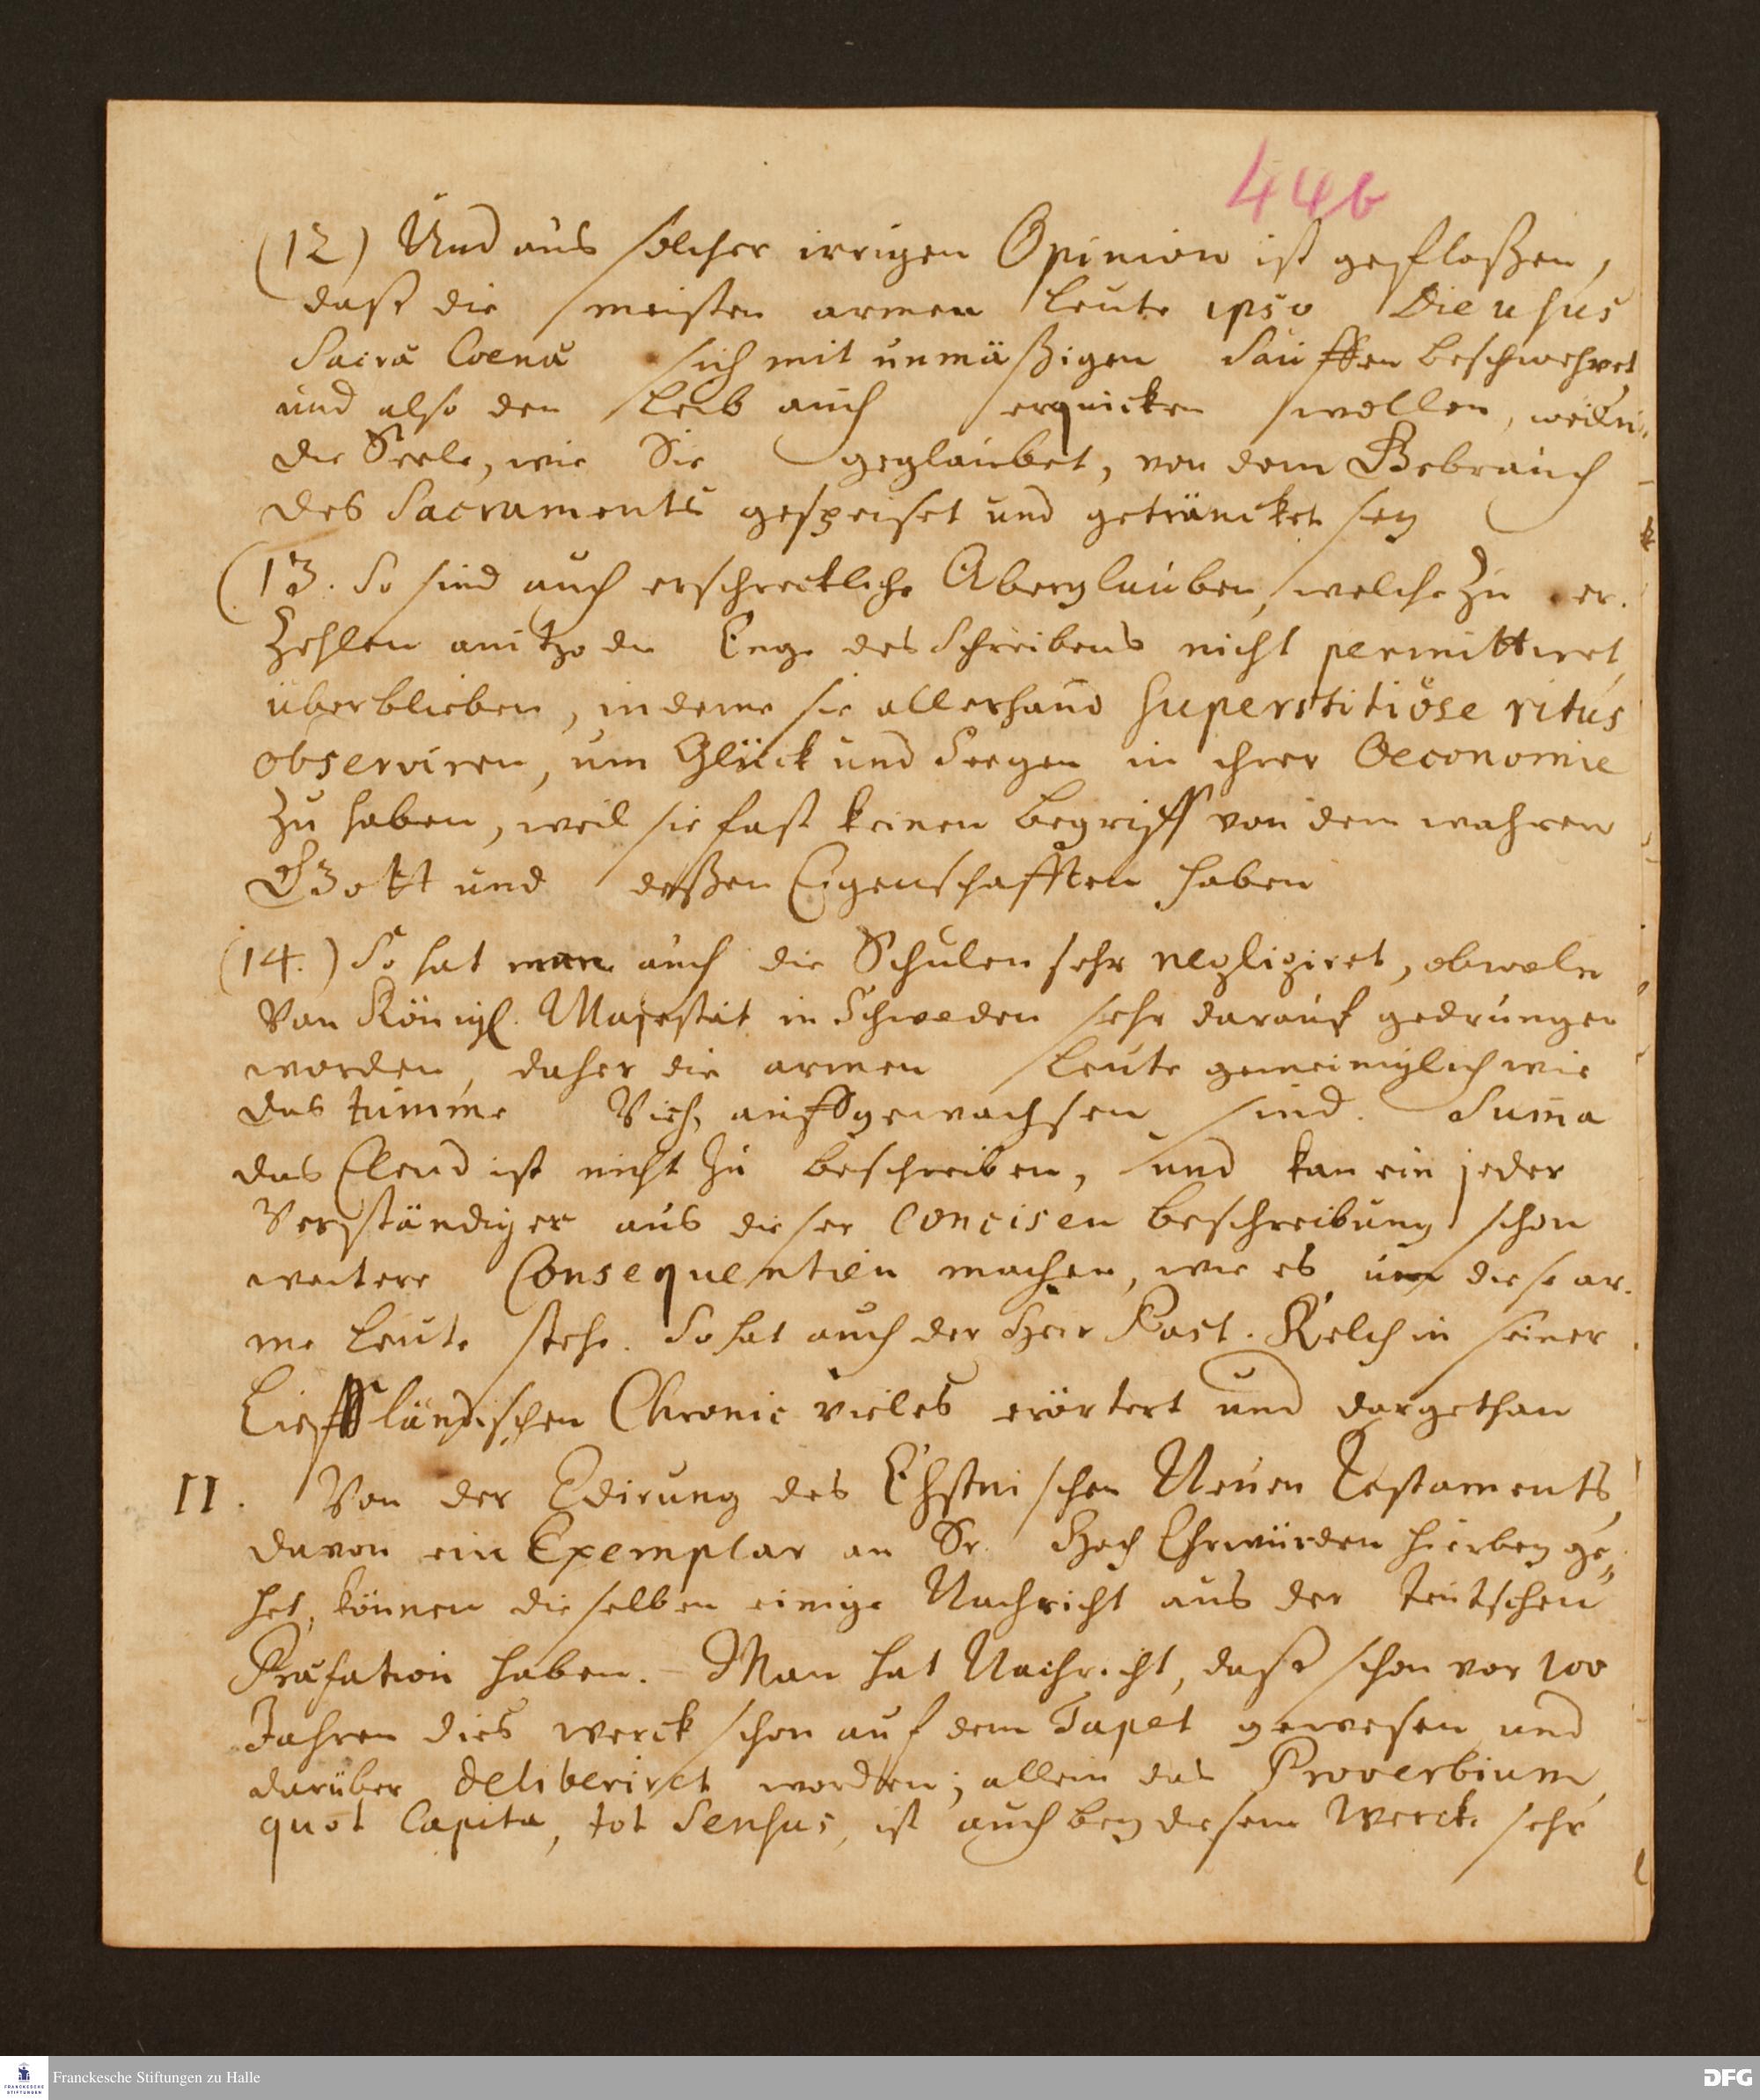 44b
(12) Und aus solcher irrigen Opinion ist gefloßen,
daß die meisten armen Leute ipso Die usus
Sacrä Coenä sich mit unmäßigen Sauffen beschwehret,
und also den Leib auch erquicken wollen, weiln
die Seele, wie Sie geglaubet, von dem Gebrauch
des Sacraments gespeiset und geträncket sey
(13. So sind auch erschreckliche Aberglauben, welche zu er-
zehlen anitzo die Enge des Schreibens nicht permittiret,
überblieben, indeme sie allerhand superstitiöse ritus
observiren, um Glück und Seegen in ihrer Oeconomie
zu haben, weil sie fast keinen Begriff von dem wahren
Gott und deßen Eigenschafften haben
(14.) So hat man auch die Schulen sehr negligiret, obwoln
von Königl. Majestät in Schweden sehr darauf gedrungen
worden, daher die armen Leute gemeiniglich wie
das tumme Vieh auffgewachsen sind. Suma
das Elend ist nicht zu beschreiben, und kan ein jeder
Verständiger aus dieser concisen Beschreibung schon
weitere Consequentien machen, wie es um diese ar-
me Leute stehe. So hat auch der Herr Past. Kelch in seiner
Liefländischen Chronic vieles erörtert und dargethan
II. Von der Edirung des Ehstnischen Neuen Testaments,
davon ein Exemplar an Sr. Hoch Ehrwürden hierbey ge-
het, können dieselben einige Nachricht aus der teutschen
Präfation haben. – Man hat Nachricht, daß schon vor 100
Jahren dies Werck schon auf dem Tapet gewesen und
darüber deliberiret worden; allein das Proverbium
quot Capita, tot Sensus, ist auch bey diesem Werck sehr
Franckesche Stiftungen zu Halle
DFG